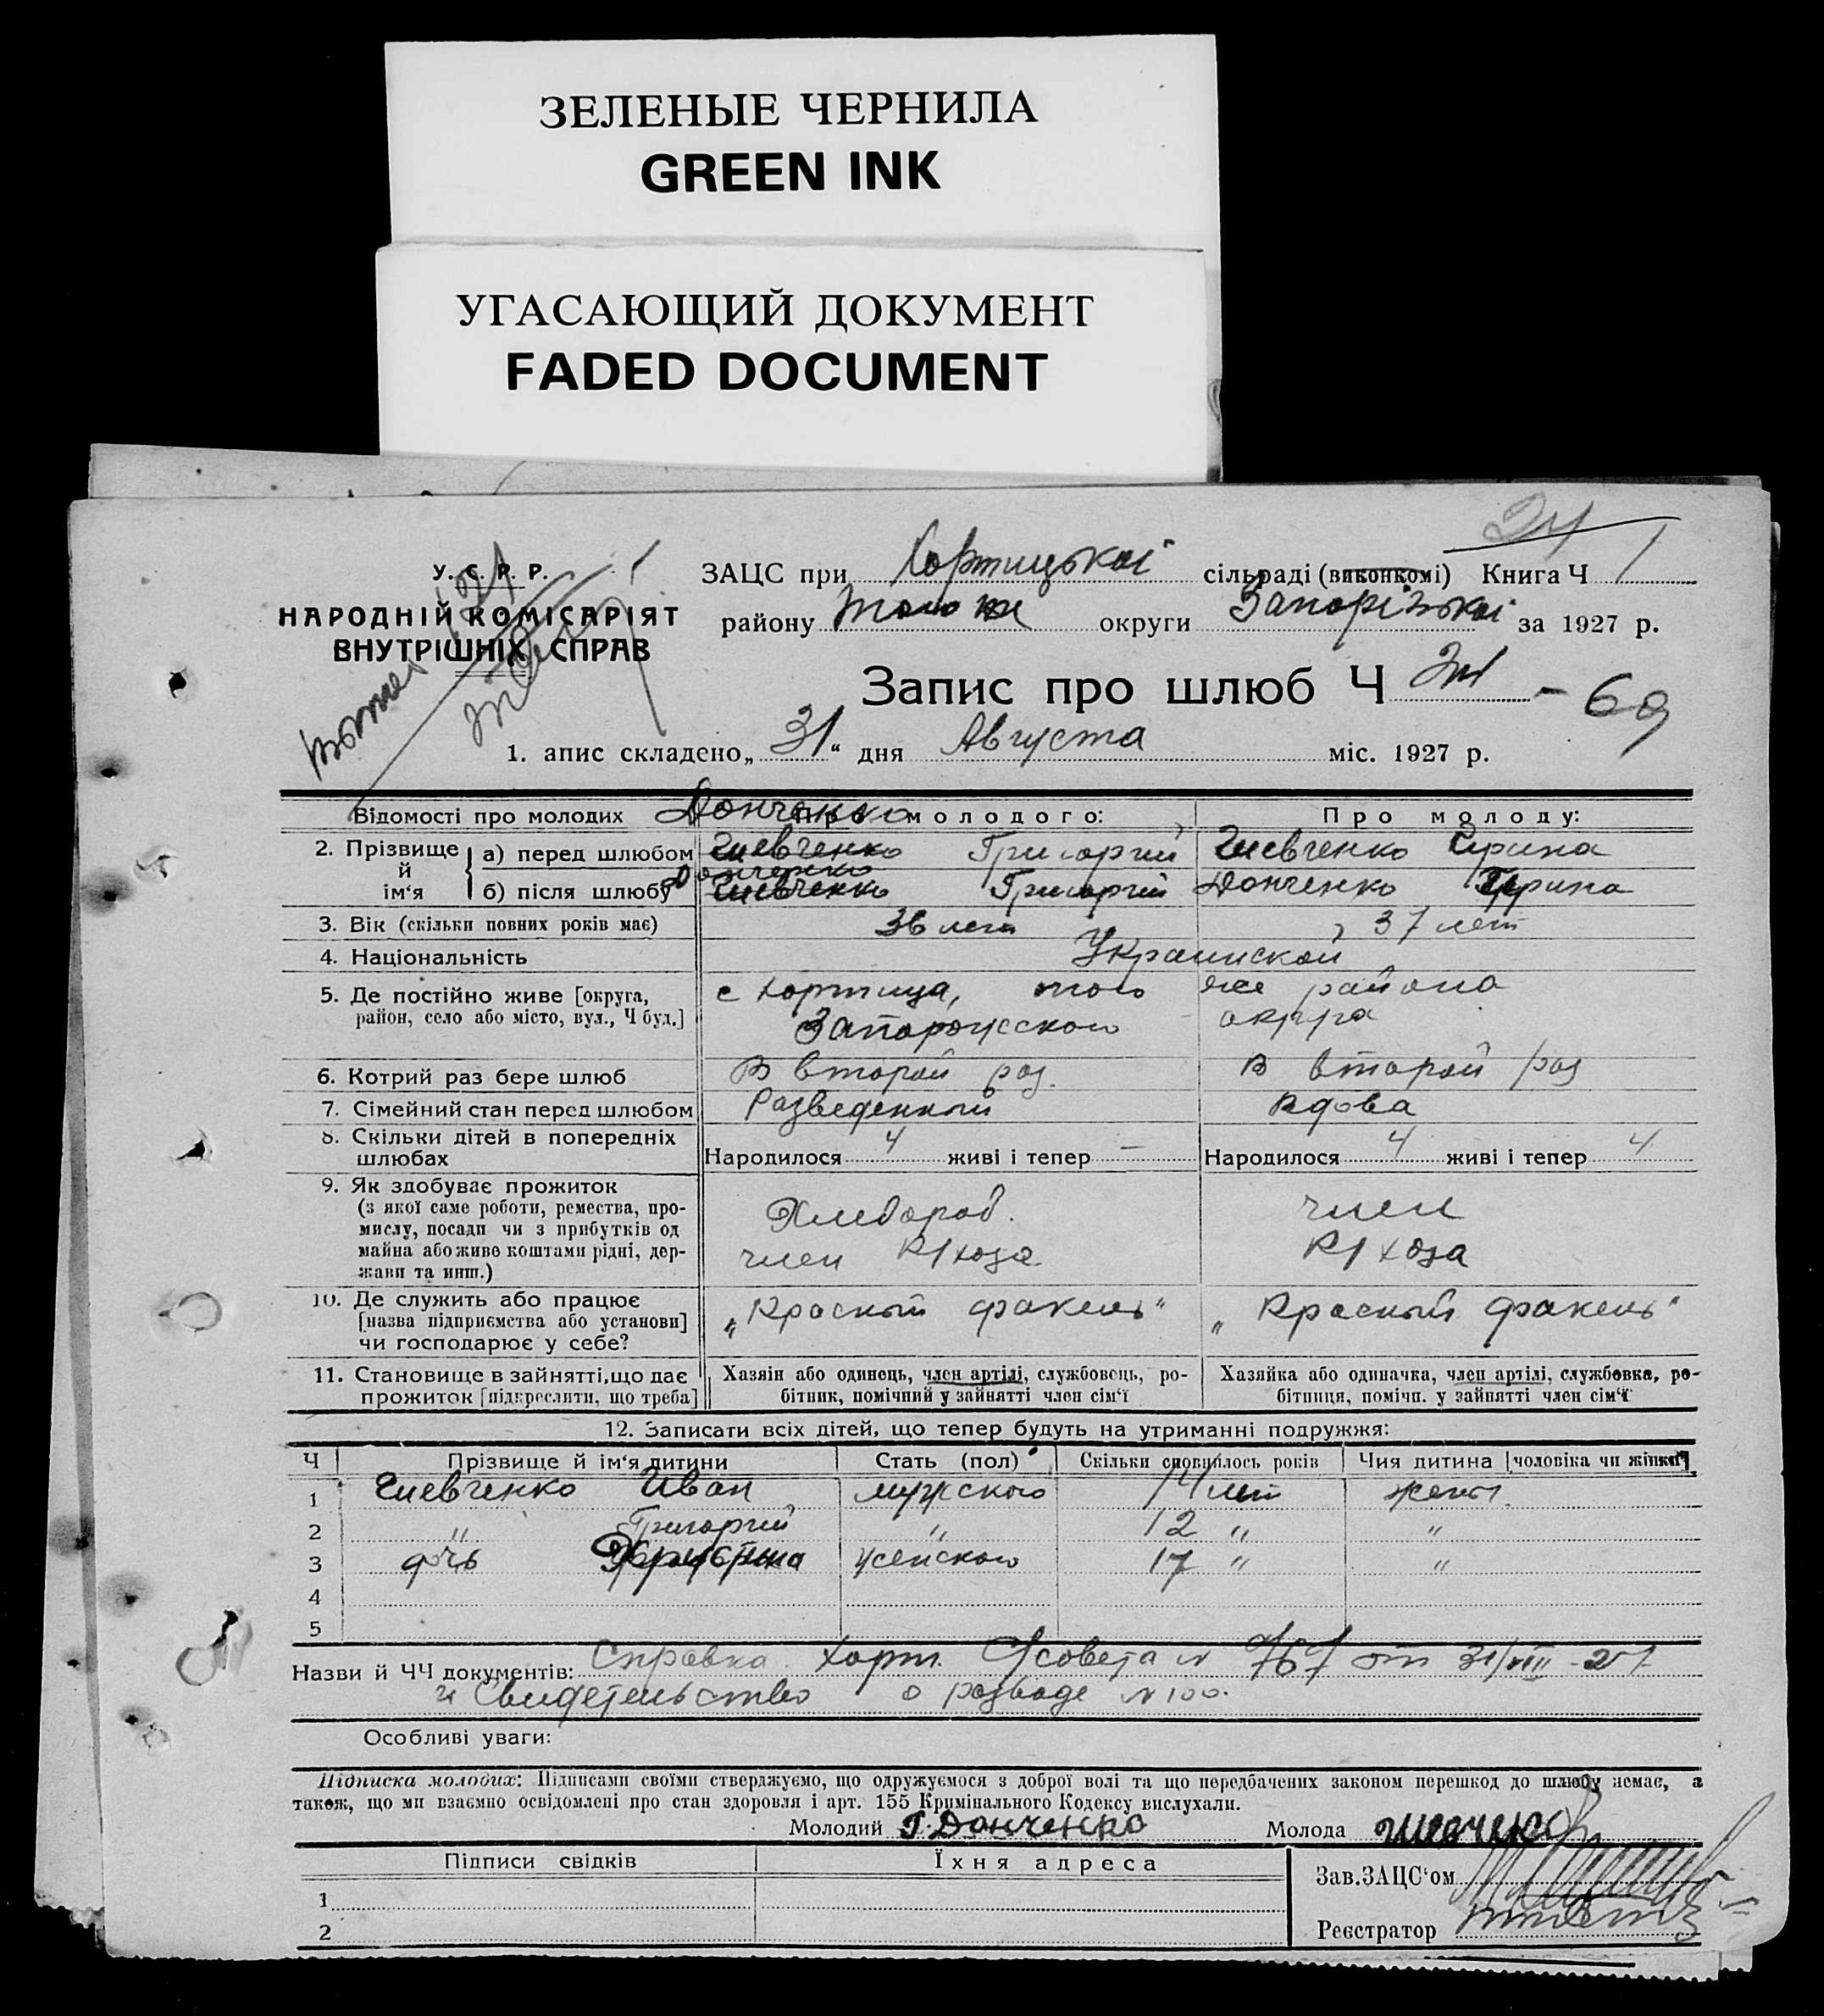 ЗЕЛЕНЫЕ ЧЕРНИЛА
GREEN INK
УГАСАЮЩИЙ ДОКУМЕНТ
FADED DOCUMENT
У. С. Р. Р.
НАРОДНІЙ КОМІСАРІЯТ
ВНУТРІШНІХ СПРАВ
24
ЗАЦС при Хортицькоі сільраді (виконкомі) Книга Ч 1
району того же округи Запорізькоі за 1927 р.
Запис про шлюб Ч - 69
1. апис складено „31“ дня Августа міс. 1927 р.
Відомості про молодих Про молодого: Про молоду:
Донченко
2. Прізвище й ім‘я
а) перед шлюбом Шевченко Григорий Шевченко Ирина
Донченко
б) після шлюбу Шевченко Григорий Донченко Ирина
3. Вік (скільки повних років має) 36 лет 37 лет
4. Національність Украинской
5. Де постійно живе [округа, с Хортица, того же района
район, село або місто, вул., Ч буд.] Запорожского округа
6. Котрий раз бере шлюб В второй раз. В второй раз
7. Сімейний стан перед шлюбом Разведенный Вдова
8. Скільки дітей в попередніх
шлюбах Народилося 4 живі і тепер — Народилося 4 живі і тепер 4
9. Як здобуває прожиток
(з якої саме роботи, ремества, про-
мислу, посади чи з прибутків од
майна або живе коштами рідні, дер-
жави та инш.)
Хлебороб. член
член К/хоза К/хоза
10. Де служить або працює
[назва підприємства або установи]
чи господарює у себе?
„Красный факель“ „Красный факель“
11. Становище в зайнятті, що дає
прожиток [підкреслити, що треба]
Хазяін або одинець, член артілі, службовець, ро-
бітник, помічний у зайнятті член сім‘ї
Хазяйка або одиначка, член артілі, службовка, ро-
бітниця, помічн. у зайнятті член сім‘ї
12. Записати всіх дітей, що тепер будуть на утриманні подружжя:
Ч Прізвище й ім‘я дитини Стать (пол) Скільки сповнилось років Чия дитина [чоловіка чи жінки]
1 Шевченко Иван мужского 14 лет жены
2 " Григорий " 12 " "
3 дочь женского 17 " "
4
5
Назви й ЧЧ документів: Справка Хорт. С/совета N 767 от 31/VIII-27
и Свидетельство о разводе N 100.
Особливі уваги:
Підписка молодих: Підписами своїми стверджуємо, що одружуємося з доброї волі та що передбачених законом перешкод до шлюбу немає, а
також, що ми взаємно освідомлені про стан здоровля і арт. 155 Кримінального Кодексу вислухали.
Молодий Г. Донченко Молода
Підписи свідків Їхня адреса
Зав. ЗАЦС‘ом
1
Реєстратор
2